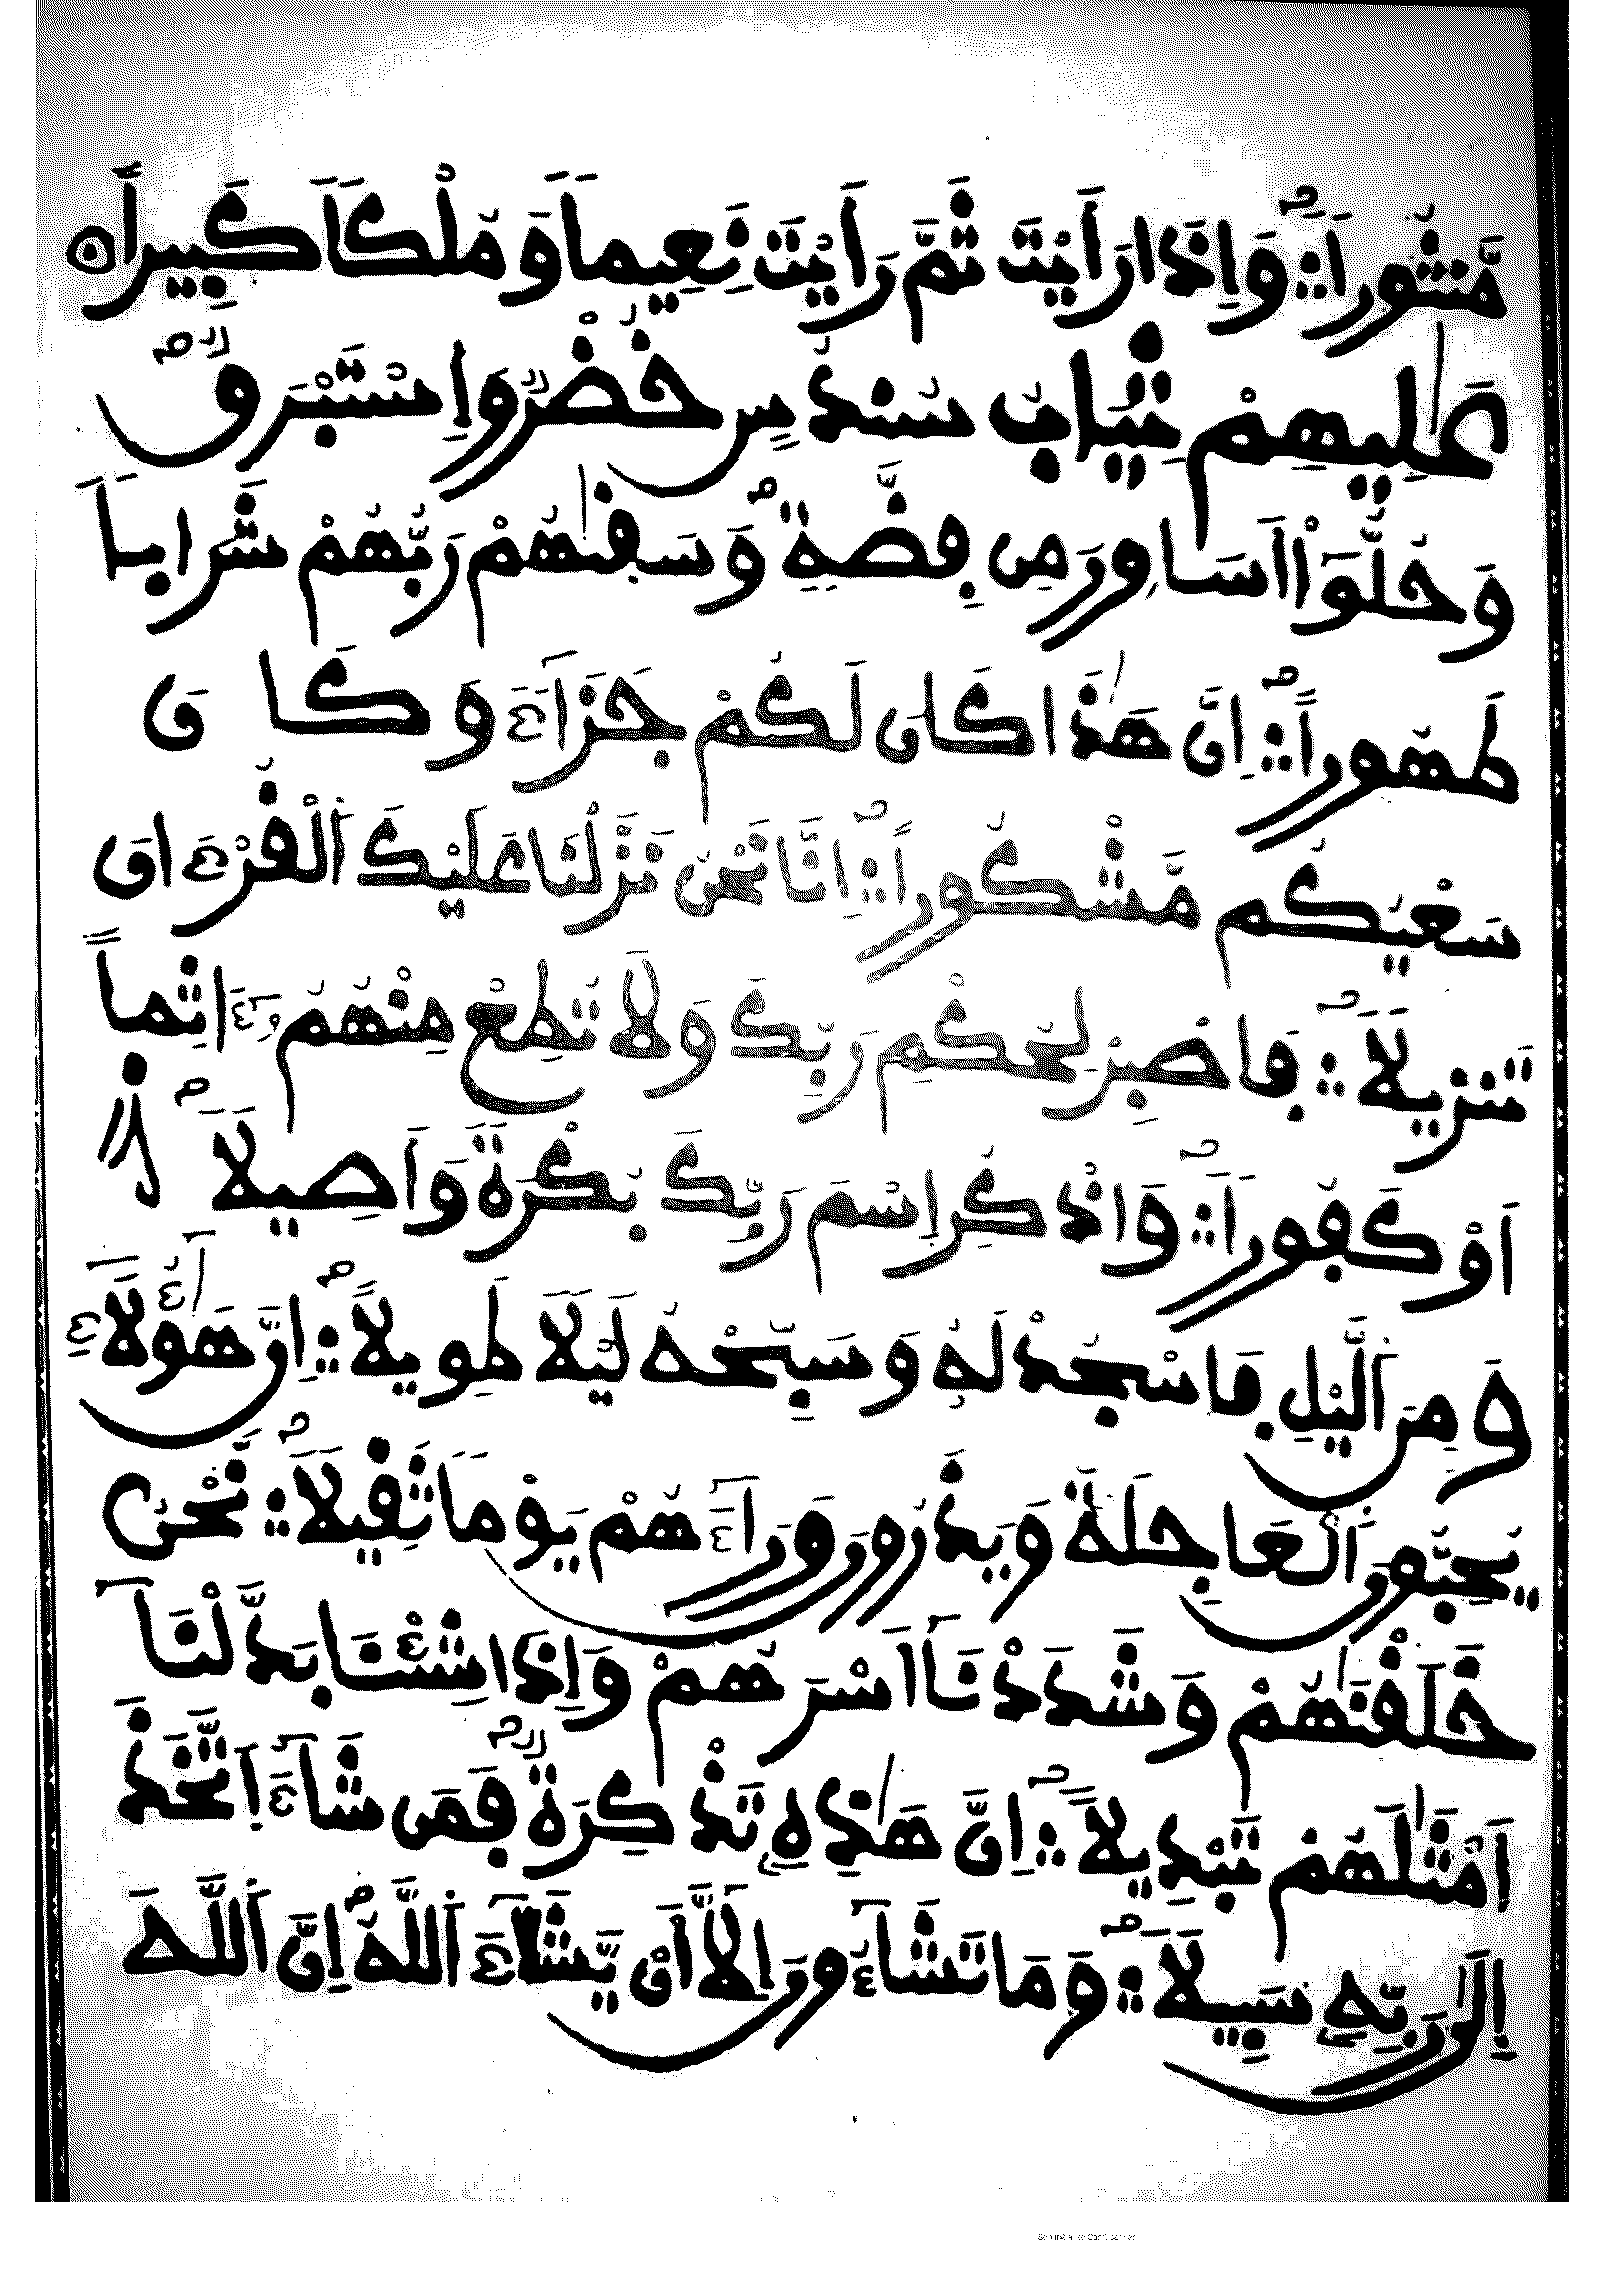 مَّنثُوراً ۞ وَإِذَا رَأَيْتَ ثَمَّ رَأَيْتَ نَعِيماً وَمُلْكاً كَبِيراً
عَٰلِيهِمْ ثِيَابُ سُندُسٍ خُضْرٌ وَإِسْتَبْرَقٌ
وَحُلُّوٓاْ أَسَاوِرَ مِن فِضَّةٍ وَسَقَىٰهُمْ رَبُّهُمْ شَرَاباً
طَهُوراً ۞ إِنَّ هَٰذَا كَانَ لَكُمْ جَزَآءً وَكَانَ
سَعْيُكُم مَّشْكُوراً ۞ إِنَّا نَحْنُ نَزَّلْنَا عَلَيْكَ اَلْقُرْءَانَ
تَنزِيلاً ۞ فَاصْبِرْ لِحُكْمِ رَبِّكَ وَلَا تُطِعْ مِنْهُمُۥٓ ءَاثِماً
أَوْ كَفُوراً ۞ وَاذْكُرِ اِسْمَ رَبِّكَ بُكْرَةً وَأَصِيلاً
وَمِنَ اَلَّيْلِ فَاسْجُدْ لَهُۥ وَسَبِّحْهُ لَيْلاً طَوِيلاً ۞ إِنَّ هَٰٓؤُلَآءِ
يُحِبُّونَ اَلْعَاجِلَةَ وَيَذَرُونَ وَرَآءَهُمْ يَوْماً ثَقِيلاً ۞ نَّحْنُ
خَلَقْنَٰهُمْ وَشَدَدْنَآ أَسْرَهُمْ وَإِذَا شِئْنَا بَدَّلْنَآ
أَمْثَٰلَهُمْ تَبْدِيلاً ۞ إِنَّ هَٰذِهِۦ تَذْكِرَةٌ فَمَن شَآءَ اَتَّخَذَ
إِلَىٰ رَبِّهِۦ سَبِيلاً ۞ وَمَا تَشَآءُونَ إِلَّآ أَنْ يَّشَآءَ اَللَّهُ إِنَّ اَللَّهَ